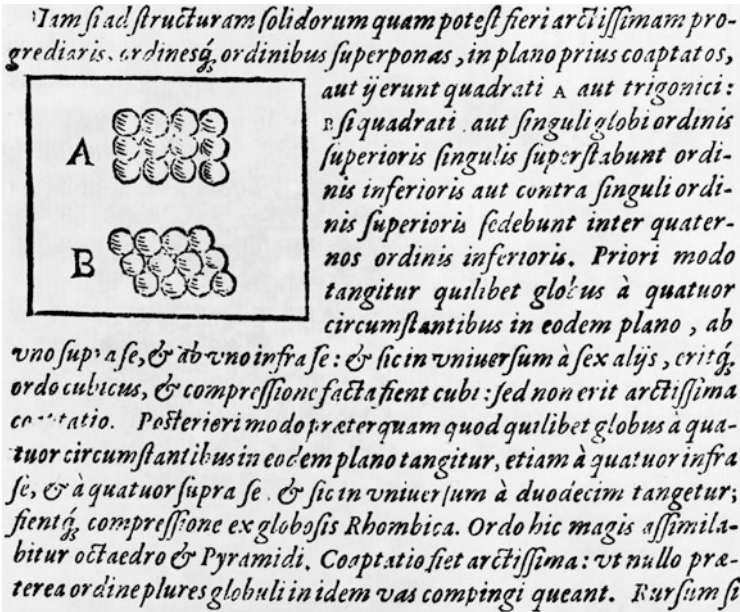 Iam ſi ad ſtructuram ſolidorum quam poteſt fieri arctiſſimam pro-
grediaris, ordineſq́; ordinibus ſuperponas, in plano prius coaptatos,
aut ij erunt quadrati A aut trigonici:
B ſi quadrati aut ſinguli globi ordinis
ſuperioris ſingulis ſuperſtabunt ordi-
nis inferioris aut contra ſinguli ordi-
nis ſuperioris ſedebunt inter quater-
nos ordinis inferioris. Priori modo
tangitur quilibet globus à quatuor
circumſtantibus in eodem plano, ab
vno ſupra ſe, & ab vno infra ſe: & ſic in vniuerſum à ſex alijs, eritq́;
ordo cubicus, & compreſſione facta fient cubi: ſed non erit arctiſſima
coaptatio. Poſteriori modo præterquam quod quilibet globus à qua-
tuor circumſtantibus in eodem plano tangitur, etiam à quatuor infra
ſe, & à quatuor ſupra ſe, & ſic in vniuerſum à duodecim tangetur;
fientq́; compreſſione ex globoſis Rhombica. Ordo hic magis aſſimila-
bitur octaedro & Pyramidi. Coaptatio fiet arctiſſima: vt nullo præ-
terea ordine plures globuli in idem vas compingi queant. Rurſum ſi
A
B